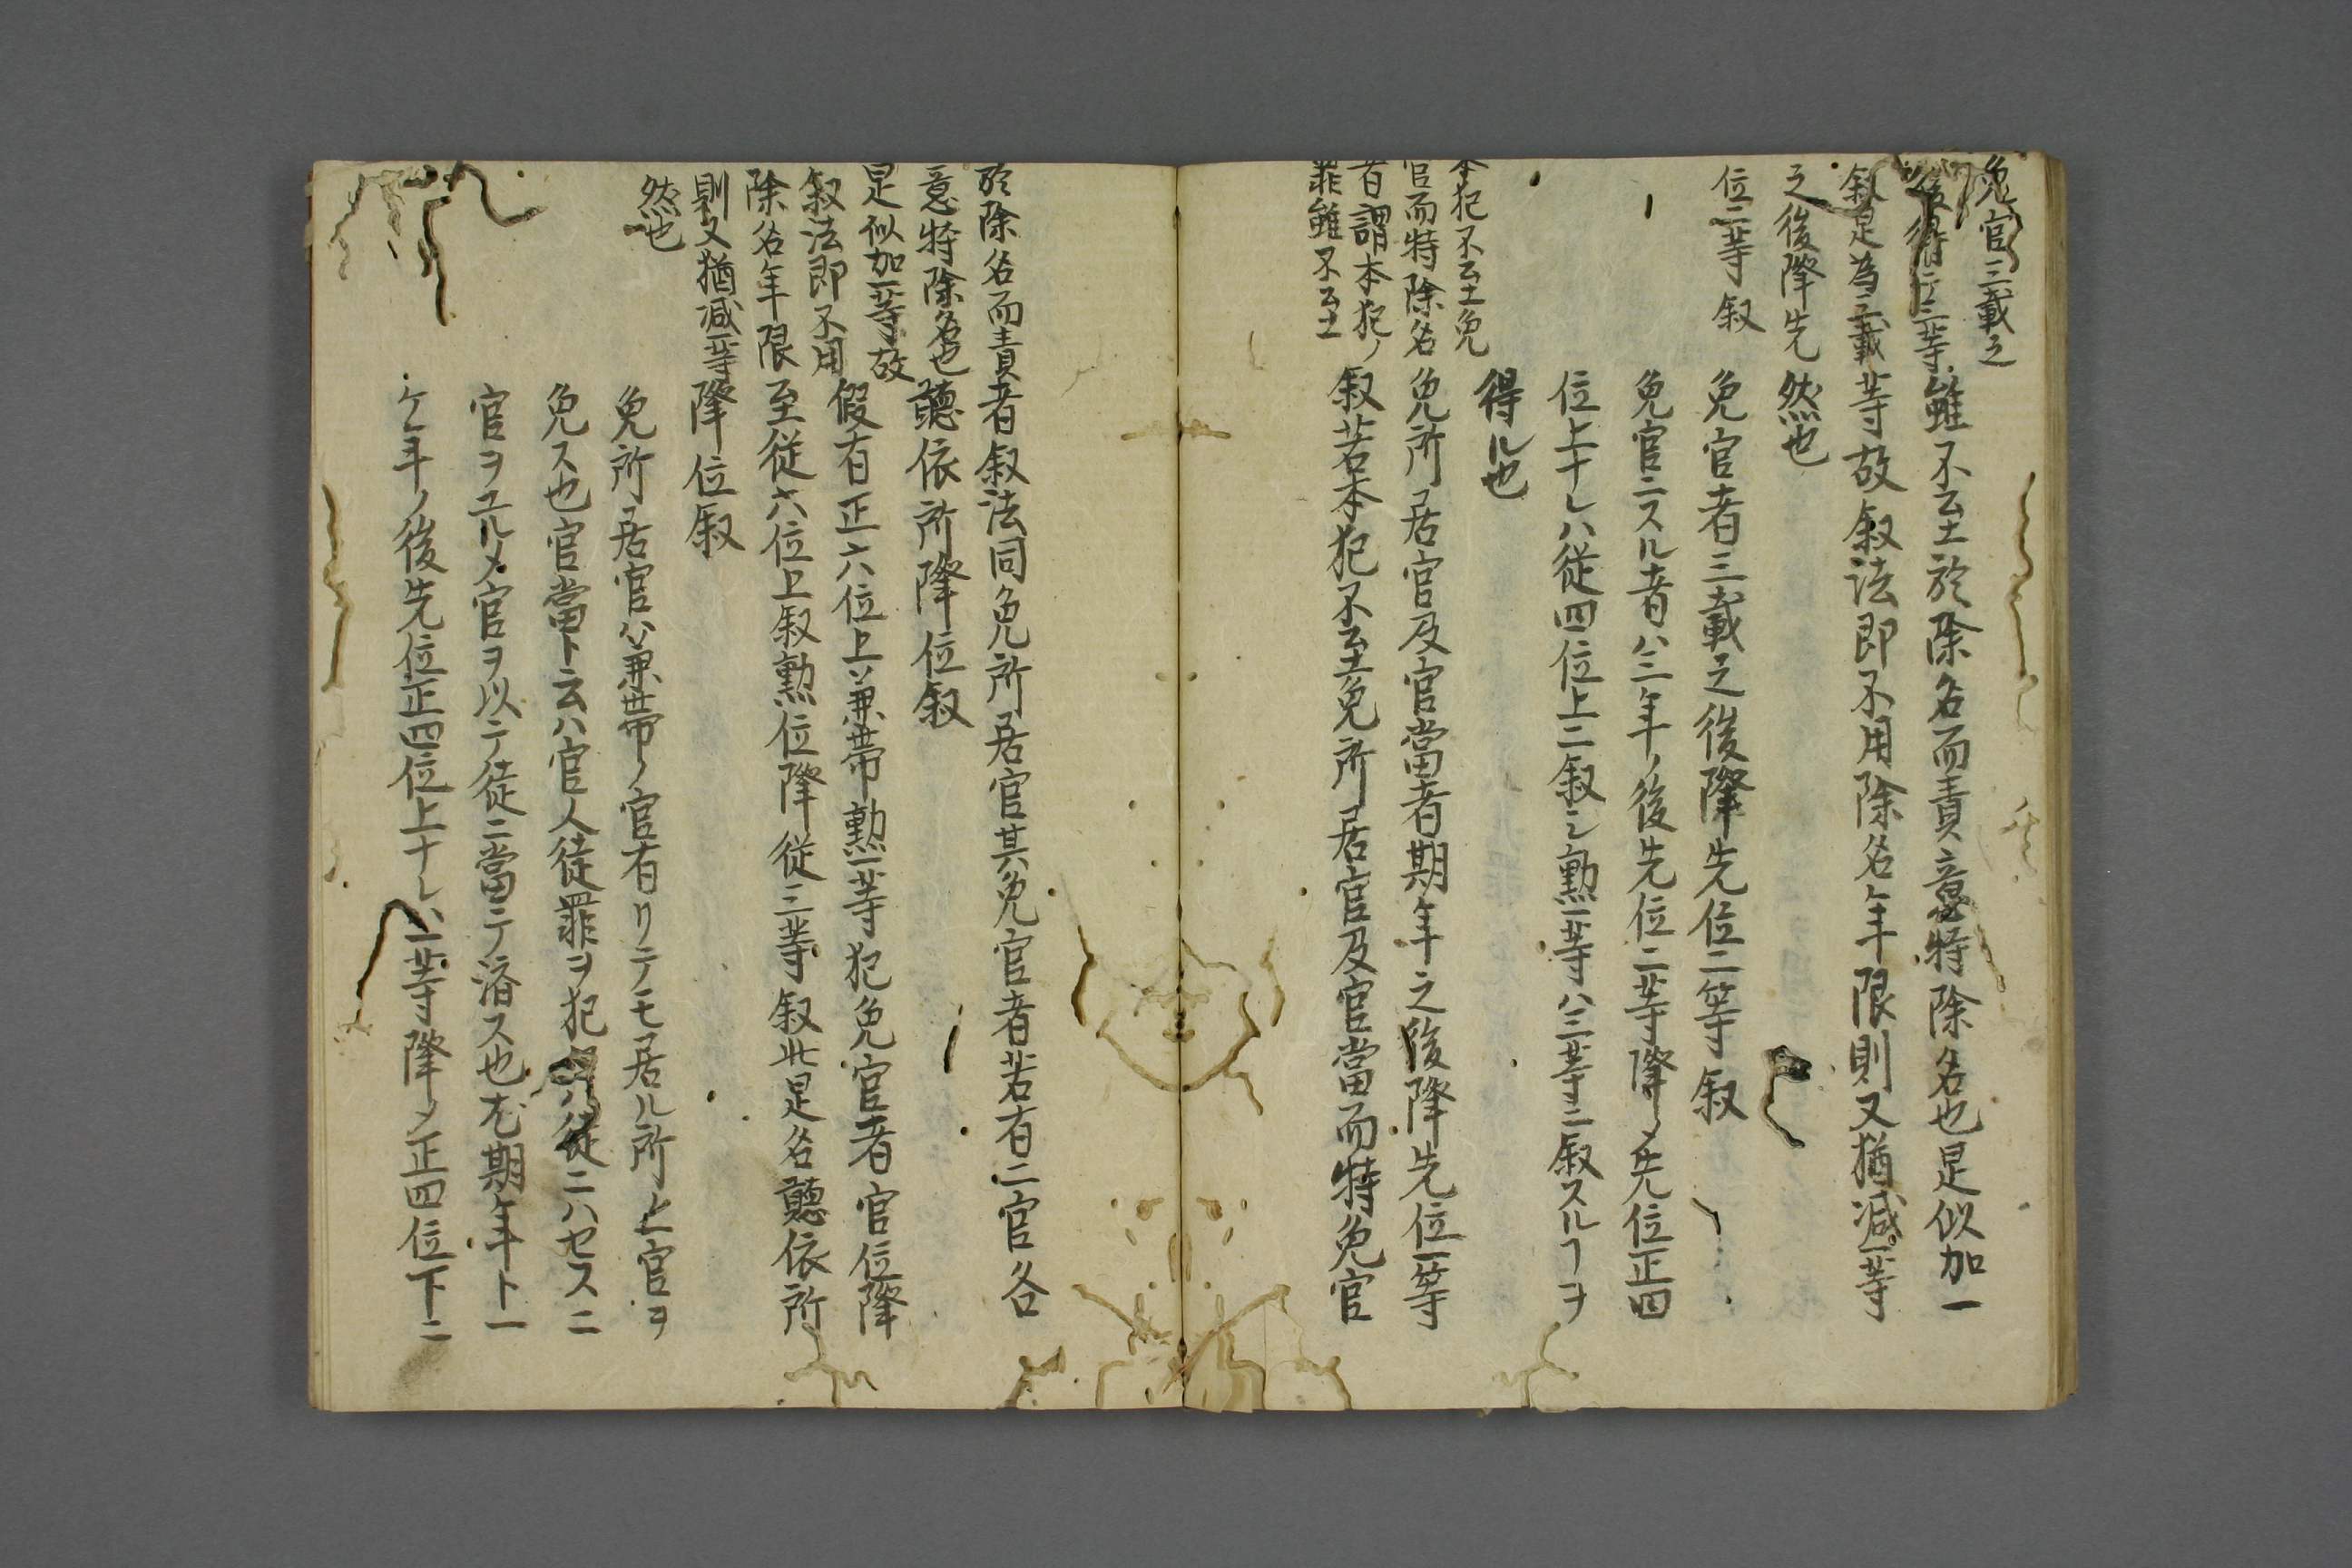 免官三載之
後降二等
叙是為三載
之後降先
位二等叙
雖不至於除名而責意特除名也是似加一
等故叙法即不用除名年限則又猶減一等
然也
免官者三載之後降先位二等叙
免官ニスル者ハ三年ノ後先位二等降〆先位正四
位上ナレハ従四位上ニ叙シ勲一等ハ三等ニ叙スルヿヲ
得ル也
本犯不至免
官而特除名
者謂本犯ノ
罪雖不至
免所居官及官當者期年之後降先位一等
叙若本犯不至免所居官及官當而特免官
於除名而責
意特除名也
是似加一等故
叙法即不用
除名年限
則又猶減一等
然也
者叙法同免所居官其免官者若有二官各
聽依所降位叙
假有正六位上兼帯勲一等犯免官者官位降
至従六位上叙勲位降従三等叙此是名聽依所
降位叙
免所居官ハ兼帯ノ官有リテモ居ル所上官ヲ
免ス也官當ト云ハ官人徒罪ヲ犯ハ徒ニハセスニ
官ヲユルメ官ヲ以テ徒ニ當テ済ス也尤期年ト一
ケ年ノ後先位正四位上ナレハ一等降〆正四位下ニ